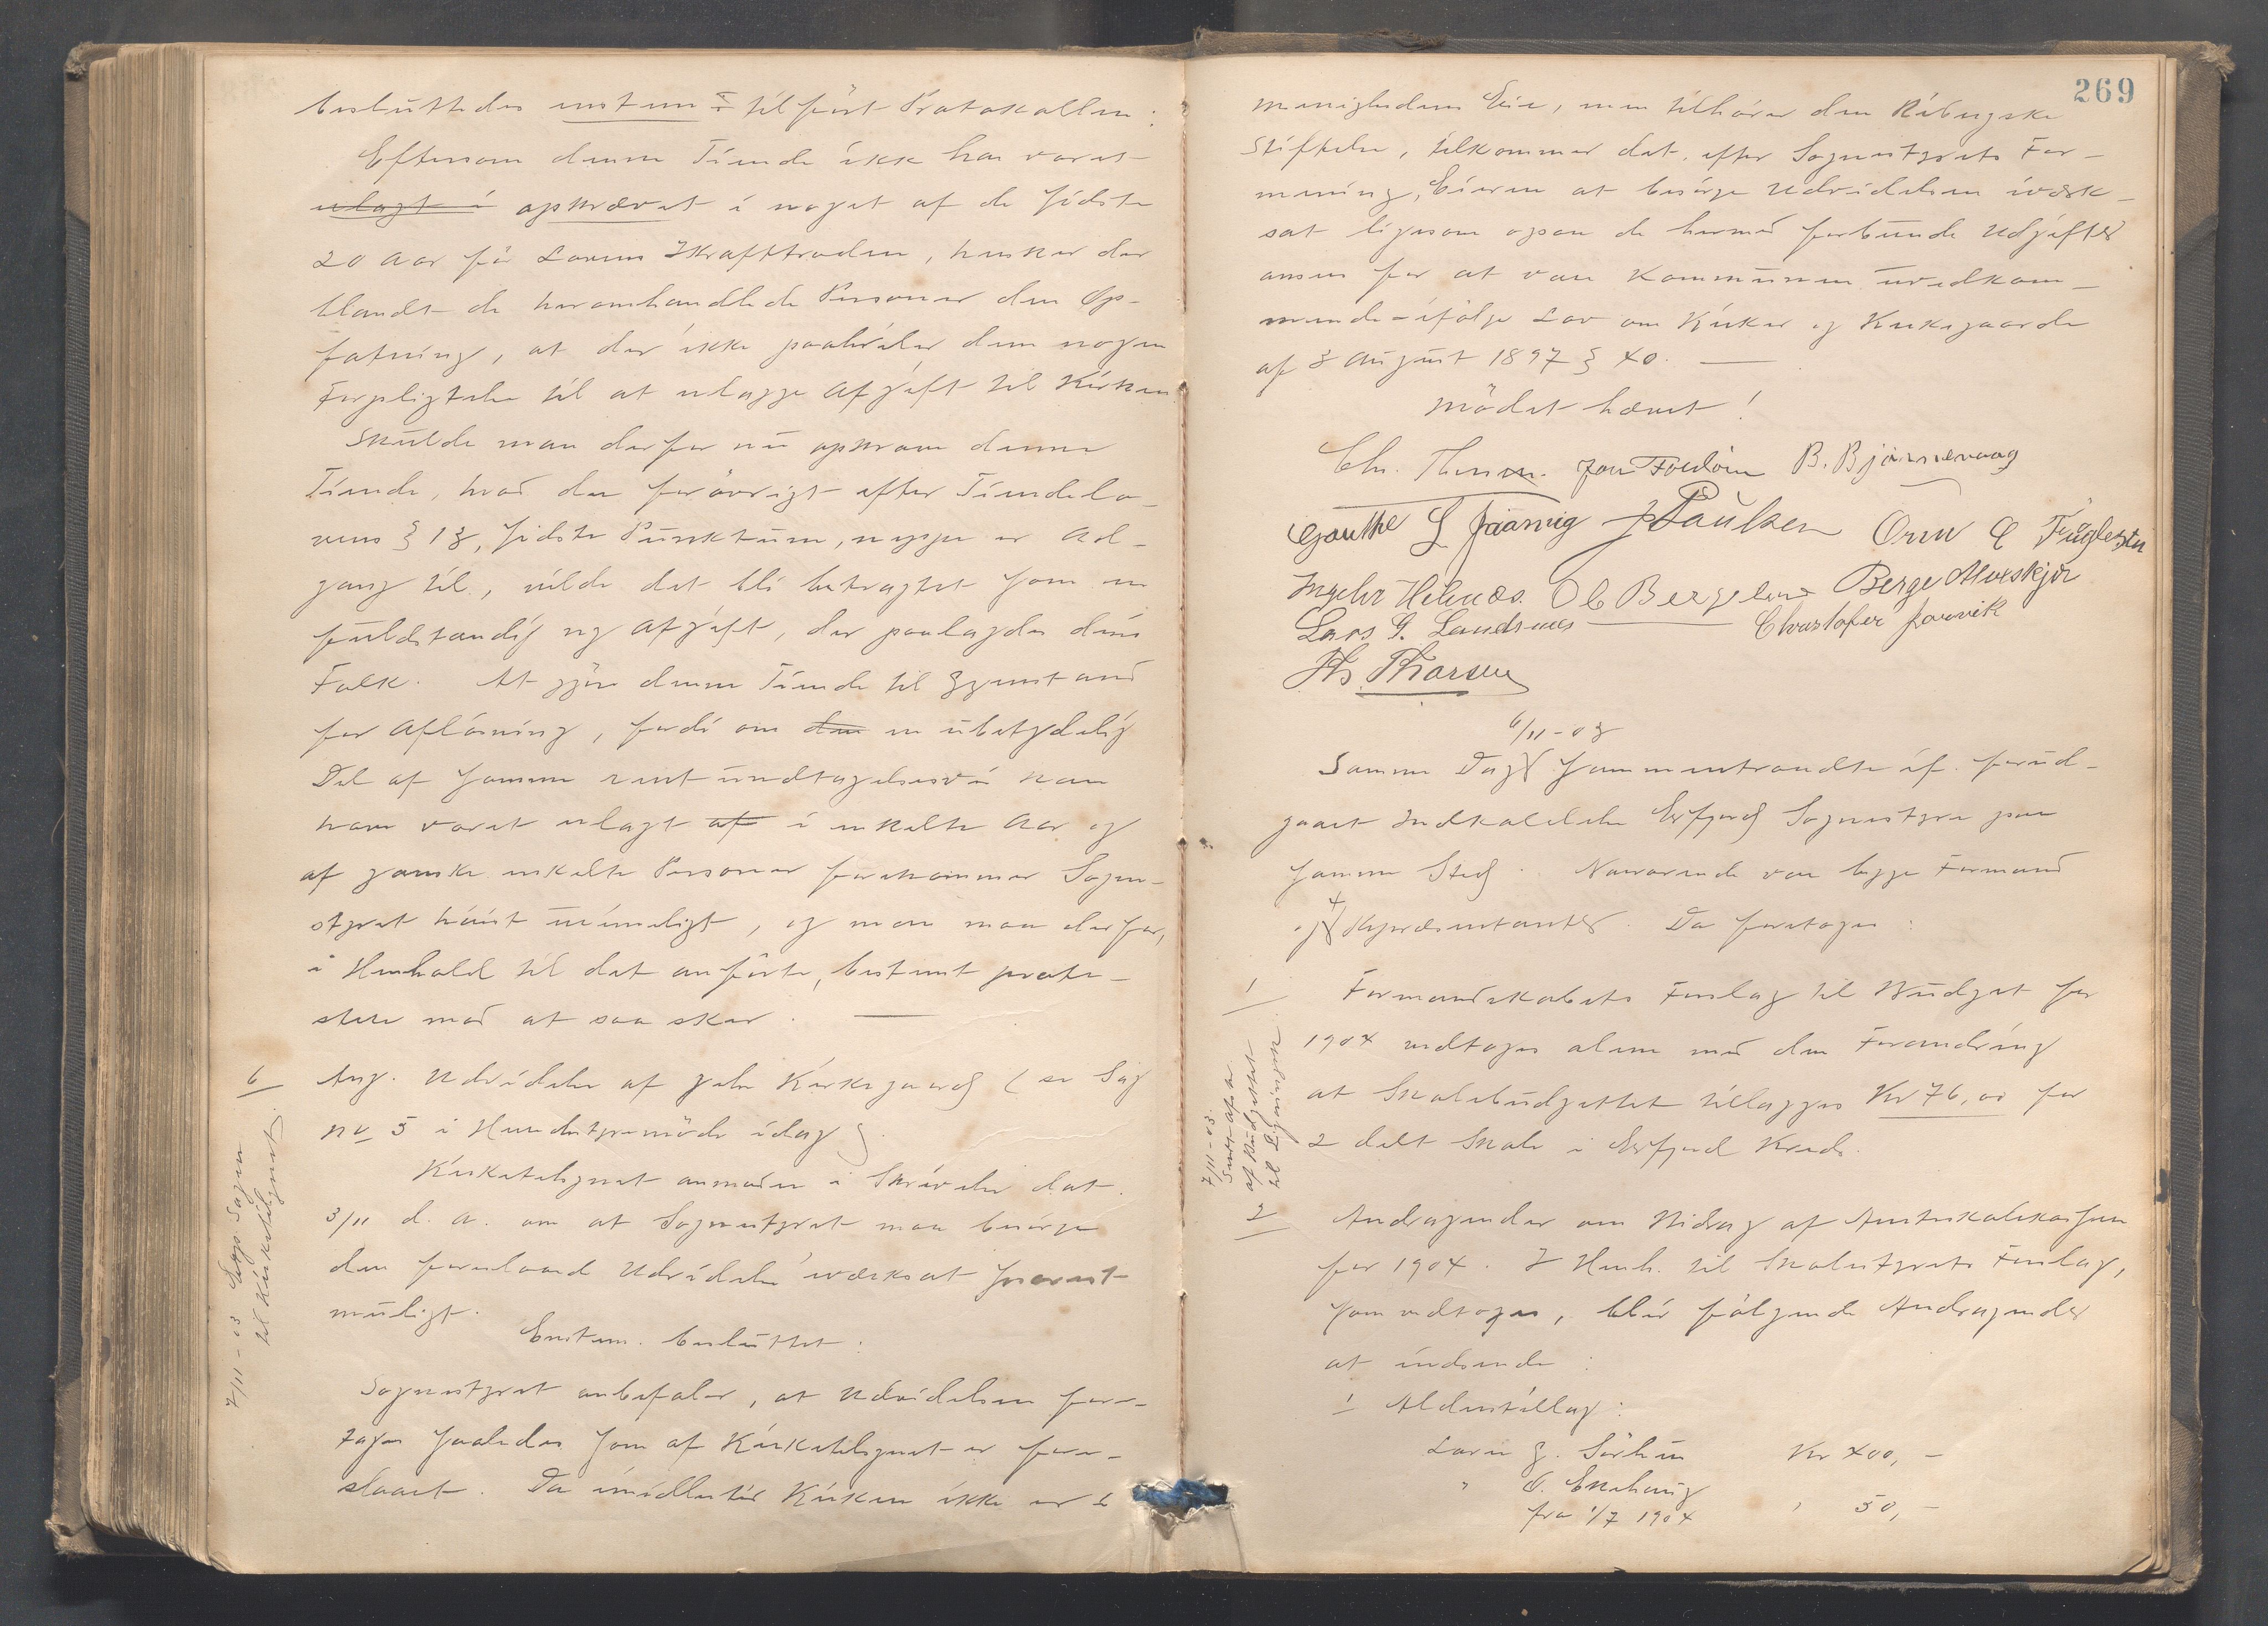 besluttedes enstem. tilført Protokollen:
Eftersom denne Tiende ikke har været
erlagt i opkrævet i noget af de sidste
20 Aar før Lovens Ikrafttræden, hersker der
blandt de heromhandlede Personer den Op-
fatning, at der ikke paahviler dem nogen
Forpligtelse til at erlægge Afgift til Kirken.
Skulde man derfor nu opkræve denne
Tiende, hvad der forøvrigt efter Tiendelo-
vens § 13, sidste Punktum, neppe er Ad-
gang til, vilde det bli betragtet som en
fuldstændig ny Afgift, der paalagdes disse
Folk. At gjøre denne Tiende til Gjenstand
for Afløsning, fordi om den en ubetydelig
Del af samme rent undtagelsesvis kan
have været erlagt af i enkelte Aar og
af ganske enkelte Personer forekommer Sogne-
styret høist urimeligt, og man maa derfor,
i Henhold til det anførte, bestemt prote-
stere mod at saa sker.
6 Ang. Udvidelse af Jelse Kirkegaard (se Sag
No 5 i Herredstyremøde idag)
Kirketilsynet anmoder i Skrivelse dat.
3/11 d. A. om at Sognestyret maa besørge
den foreslaaede Udvidelse iværksat snarest
muligt.
Enstem. besluttet:
Sognestyret anbefaler, at Udvidelsen fore-
tages saaledes som af Kirketilsynet er fore-
slaaet. Da imidlertid Kirken ikke er i
7/11-03 Exp. Sagen
til Kirketilsynet.
269
Menighedens Eie, men tilhører den Ribergske
Stiftelse, tilkommer det, efter Sognestyrets For-
mening, Eieren at besørge Udvidelsen iværk-
sat ligesom ogsaa de hermed forbundne Udgifter
ansees for at være Kommunen uvedkom-
mende ifølge Lov om Kirker og Kirkegaarde
af 3 August 1897 § 40.
Mødet hævet!
Chr. Thesen. B. Bjørnevaag
Gauthe L Jaarvig J Paulsen Orm E Fuglestein
Ingebr Helnæs. Ole Bergeland Berge Moeskjer
Lars G. Landsnes Christofer Jarvik
Ths. Thorsen
6/11-03
Samme Dag sammentraadte if. forud-
gaaet Indkaldelse Erfjord Sognestyre paa
samme Sted. Nærværende var begge Formænd
og 4 Repræsentanter. Da foretoges:
1 Formandskabets Forslag til Budget for
1904 vedtoges alene med den Forandring
at Skolebudgettet tillægges Kr 76,00 for
2 delt Skole i Erfjord Kreds.
7/11-03.
Sendt afskr.
af Budgettet
til Ligningsk.
2 Andragender om Bidrag af Amtsskolekassen
for 1904. I Henh. til Skolestyrets Forslag,
som vedtoges, blir følgende Andragender
at indsende:
1 Alderstillæg:
Lærer G. Sørhus Kr 400,-
" O. Eskehaug
fra 1/7 1904 " 50,-